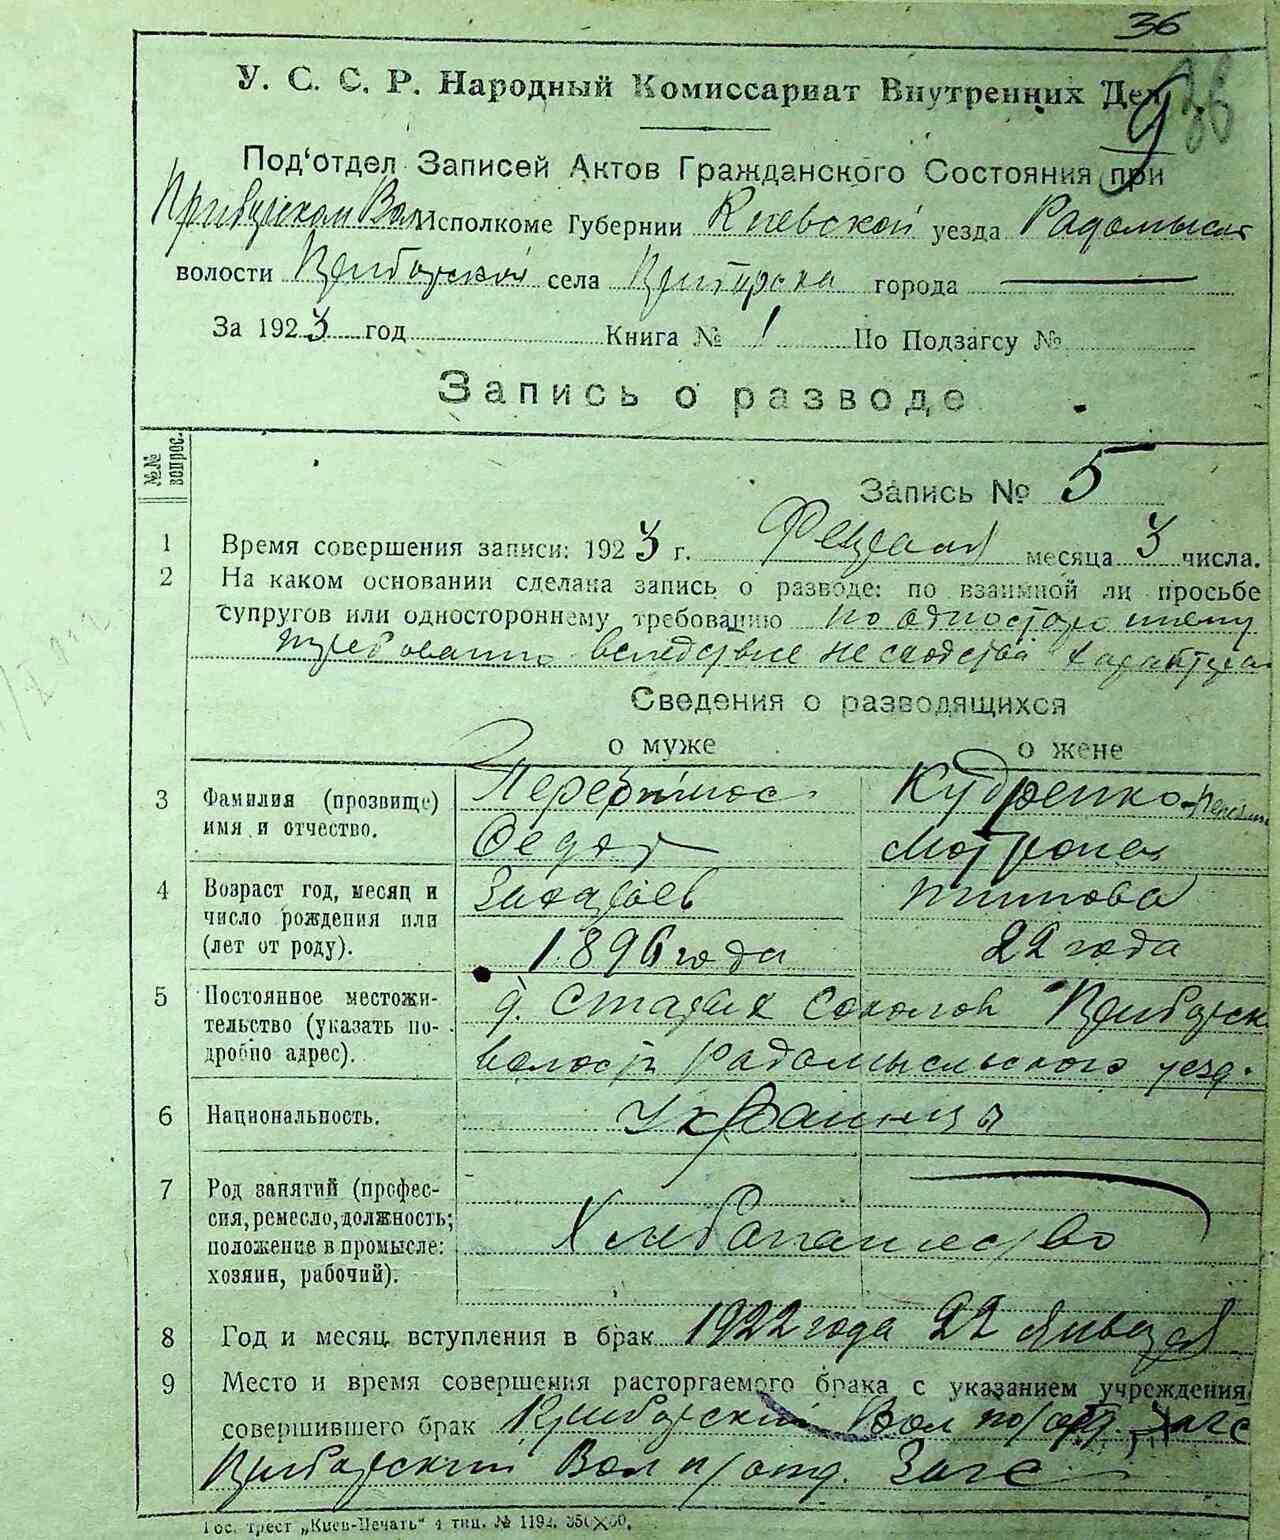 36
У. С. С. Р. Народный Комиссариат Внутренних Дел
9 36
Под‘отдел Записей Актов Гражданского Состояния при
Прибурском Вол Исполкоме Губернии Киевской уезда Радомысл
волости села города
За 1923 год Книга № 1 По Подзагсу №
Запись о разводе
№№ вопрос.
Запись № 5
1 Время совершения записи: 1923 г. Февраля месяца 3 числа.
2 На каком основании сделана запись о разводе: по взаимной ли просьбе
супругов или одностороннему требованию по одностороннему
требованию вследствие несходства характера
Сведения о разводящихся
о муже о жене
3 Фамилия (прозвище) имя и отчество. Кудренко
Федот Мотрона
4 Возраст год, месяц и число рождения или (лет от роду). Захарьев Титова
1896 года 22 года
5 Постоянное местожи-
тельство (указать по-
дробно адрес).
д. Старых Соколов
волости Радомысльского уезд.
6 Национальность. Украинцы
7 Род занятий (профес-
сия, ремесло, должность;
положение в промысле:
хозяин, рабочий).
Хлебопашество
8 Год и месяц вступления в брак 1922 года 22 Января
9 Место и время совершения расторгаемого брака с указанием учреждения
совершившего брак Вол п/отд. Загс
Вол п/отд. Загс
Гос. трест „Киев-Печать“ 4 тип. № 1192. 350×50.